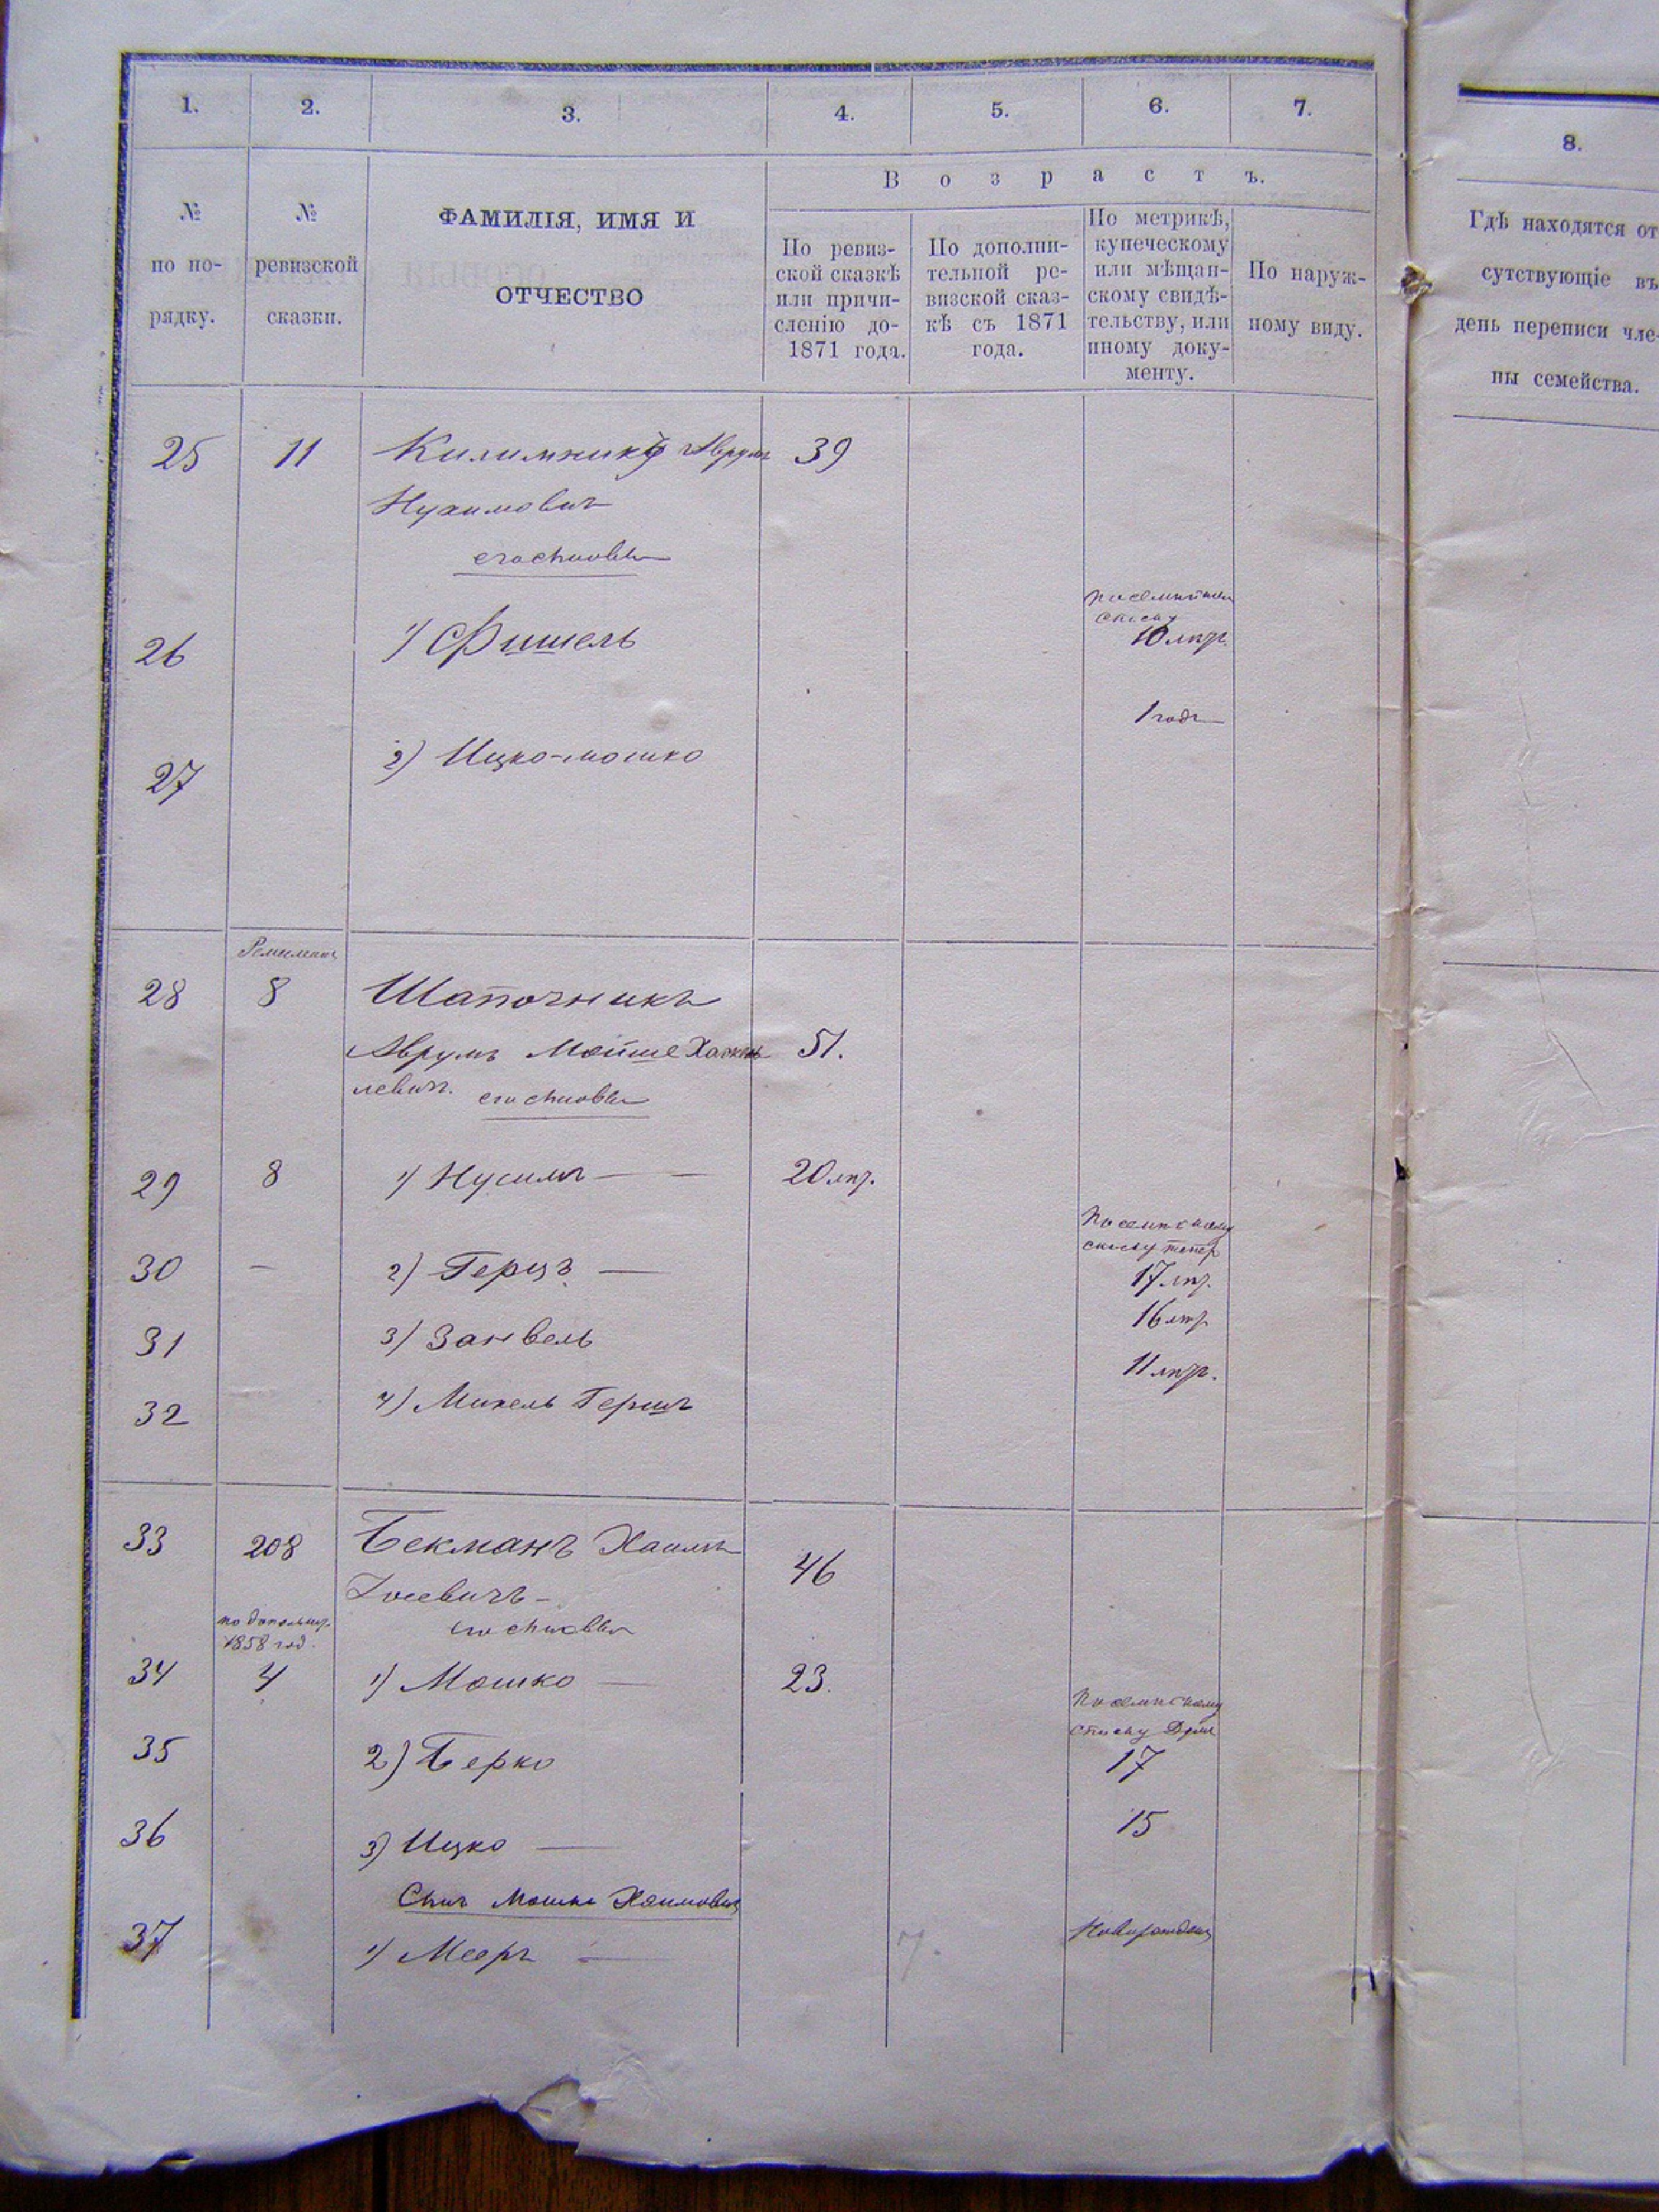 1. 2. 3. 4. 5. 6. 7.
№ по по-рядку.
№ ревизской сказки.
ФАМИЛІЯ, ИМЯ И
ОТЧЕСТВО
Возрастъ.
По ревиз-
ской сказкѣ
или причи-
сленію до-
1871 года.
По дополни-
тельной ре-
визской сказ-
кѣ съ 1871
года.
По метрикѣ,
купеческому
или мѣщан-
скому свидѣ-
тельству, или
иному доку-
менту.
По наруж-
ному виду.
8.
Гдѣ находятся от
сутствующіе въ
день переписи чле-
ны семейства.
25 11 Килимникъ Аврумъ 39
Нухимовичъ
его сыновья
списку
26 1) Фишель 10 лѣтъ
1 годъ
27 2) Ицко-мошко
28 8 Шапочникъ
Аврумъ Мойше 51.
левичъ. его сыновья
29 8 1) Нусимъ — 20 лѣт.
списку
30 — 2) Герцъ — 17 лѣт.
31 3) Занвель 16 лѣт
32 4) Михель Гершъ 11 лѣтъ.
33 208 Бекманъ Хаимъ 46
Іосевичъ —
его сыновья
по дополнит.
1858 год.
34 4 1) Мошко — 23.
списку
35 2) Берко 17
36 3) Ицко — 15
Сынъ Мошка Хаимовича
37 1) Мееръ —
7.